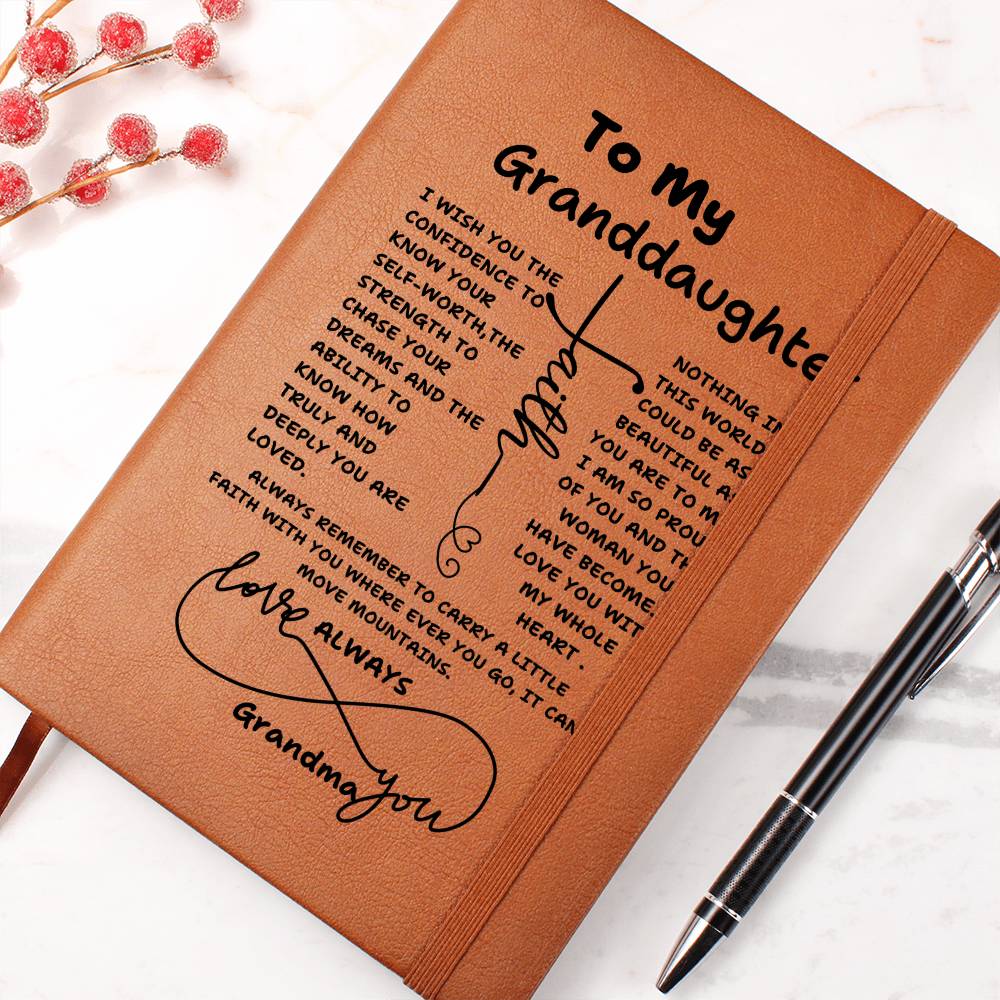 To My
Granddaughte
I WISH YOU THE
CONFIDENCE TO
KNOW YOUR
SELF-WORTH,THE
STRENGTH TO
CHASE YOUR
DREAMS AND THE
ABILITY TO
KNOW HOW
TRULY AND
DEEPLY YOU ARE
LOVED.
faith
NOTHING IN
THIS WORLD
COULD BE AS
BEAUTIFUL AS
YOU ARE TO M
I AM SO PROU
OF YOU AND TH
WOMAN YOU
HAVE BECOME.
LOVE YOU WIT
MY WHOLE
HEART .
ALWAYS REMEMBER TO CARRY A LITTLE
FAITH WITH YOU WHERE EVER YOU GO, IT CAN
MOVE MOUNTAINS.
love
ALWAYS
Grandma
you